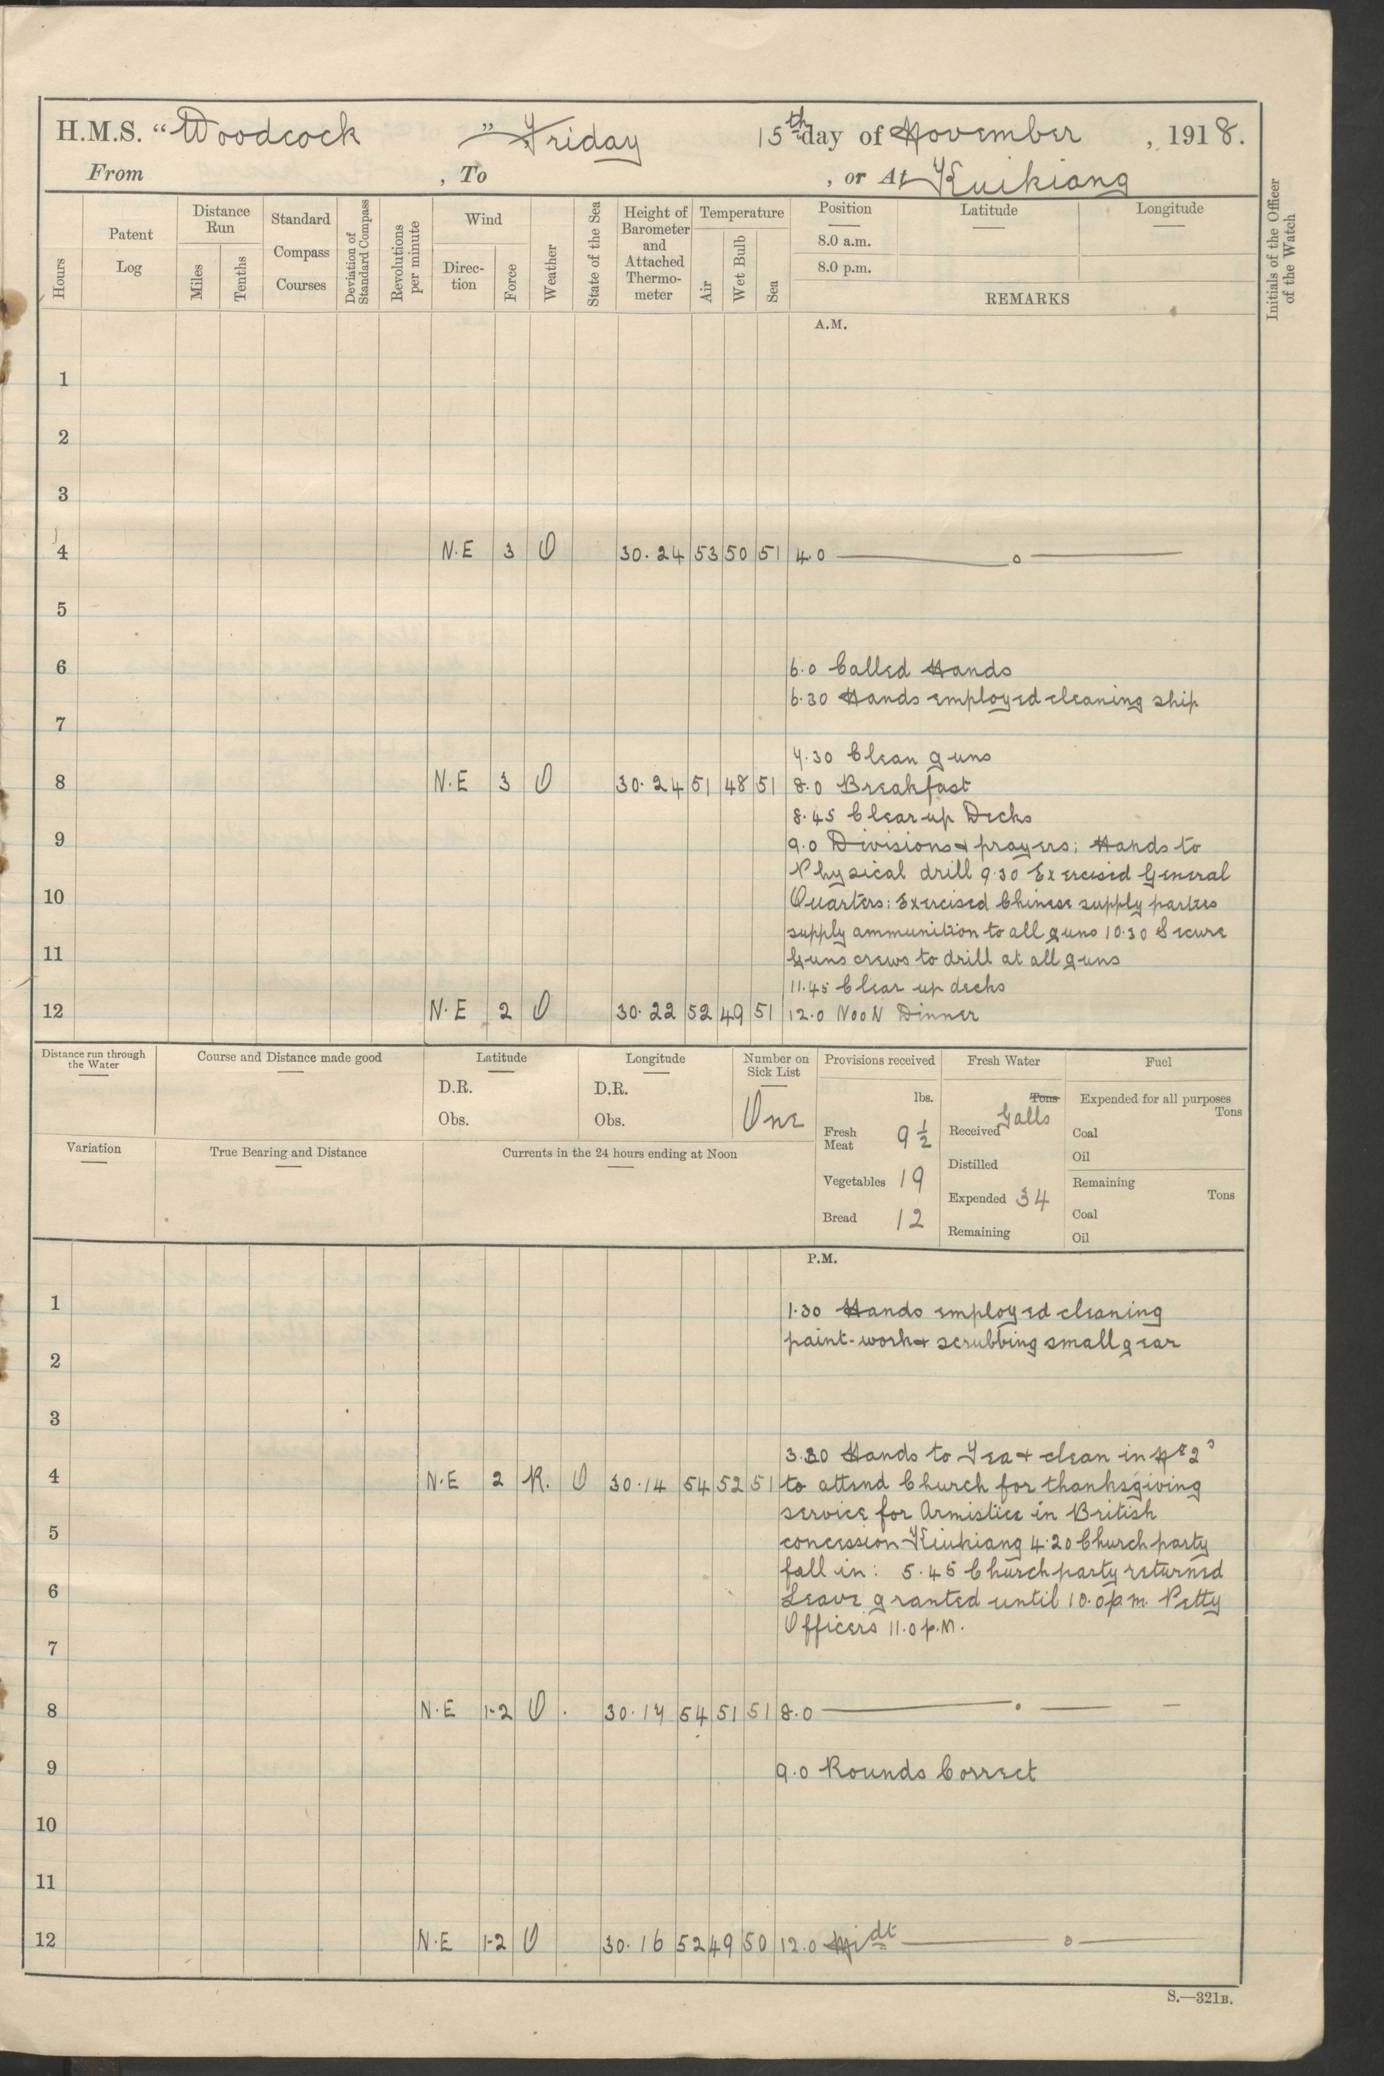 H.M.S. "Woodcock" Friday 15th day of November, 1918.
From , To , or At Kuikiang
Hours
Patent Log
Distance Run
Miles
Tenths
Standard Compass Courses
Deviation of Standard Compass
Revolutions per minute
Wind
Direc-tion
Force
Weather
State of the Sea
Height of Barometer and Attached Thermo-meter
Temperature
Air
Wet Bulb
Sea
Position
8.0 a.m.
8.0 p.m.
Latitude
Longitude
REMARKS
Initials of the Officer of the Watch
A.M.
1
2
3
4 N.E 3 O 30.24 53 50 51 4.0
5
6 6.0 Called Hands
6.30 Hands employed cleaning ship
7
7.30 Clean guns
8 N.E 3 O 30.24 51 48 51 8.0 Breakfast
8.45 Clear up Decks
9 9.0 Divisions & prayers; Hands to
Physical drill 9.30 Exercised General
10 Quarters: Exercised Chinese supply parties
supply ammunition to all guns 10.30 Secure
11 Guns crews to drill at all guns
11.45 Clear up decks
12 N.E 2 O 30.22 52 49 51 12.0 Noon Dinner
Distance run through the Water
Course and Distance made good
Latitude
D.R.
Obs.
Longitude
D.R.
Obs.
Number on Sick List
One
Provisions received
lbs.
Fresh Meat 9 1/2
Vegetables 19
Bread 12
Fresh Water
Tons
Galls
Received
Distilled
Expended 34
Remaining
Fuel
Expended for all purposes
Tons
Coal
Oil
Remaining
Tons
Coal
Oil
Variation
True Bearing and Distance
Currents in the 24 hours ending at Noon
P.M.
1 1.30 Hands employed cleaning
paint-work & scrubbing small gear
2
3
3.30 Hands to Tea & clean in Nº 2s
4 N.E 2 R. O 30.14 54 52 51 to attend Church for thanksgiving
service for Armistice in British
5 concession Kiukiang 4.20 Church party
fall in: 5.45 Church party returned
6 Leave granted until 10.0 p.m. Petty
Officers 11.0 p.m.
7
8 N.E 1-2 O . 30.17 54 51 51 8.0
9 9.0 Rounds Correct
10
11
12 N.E 1-2 O 30.16 52 49 50 12.0 Midt
S.—321B.